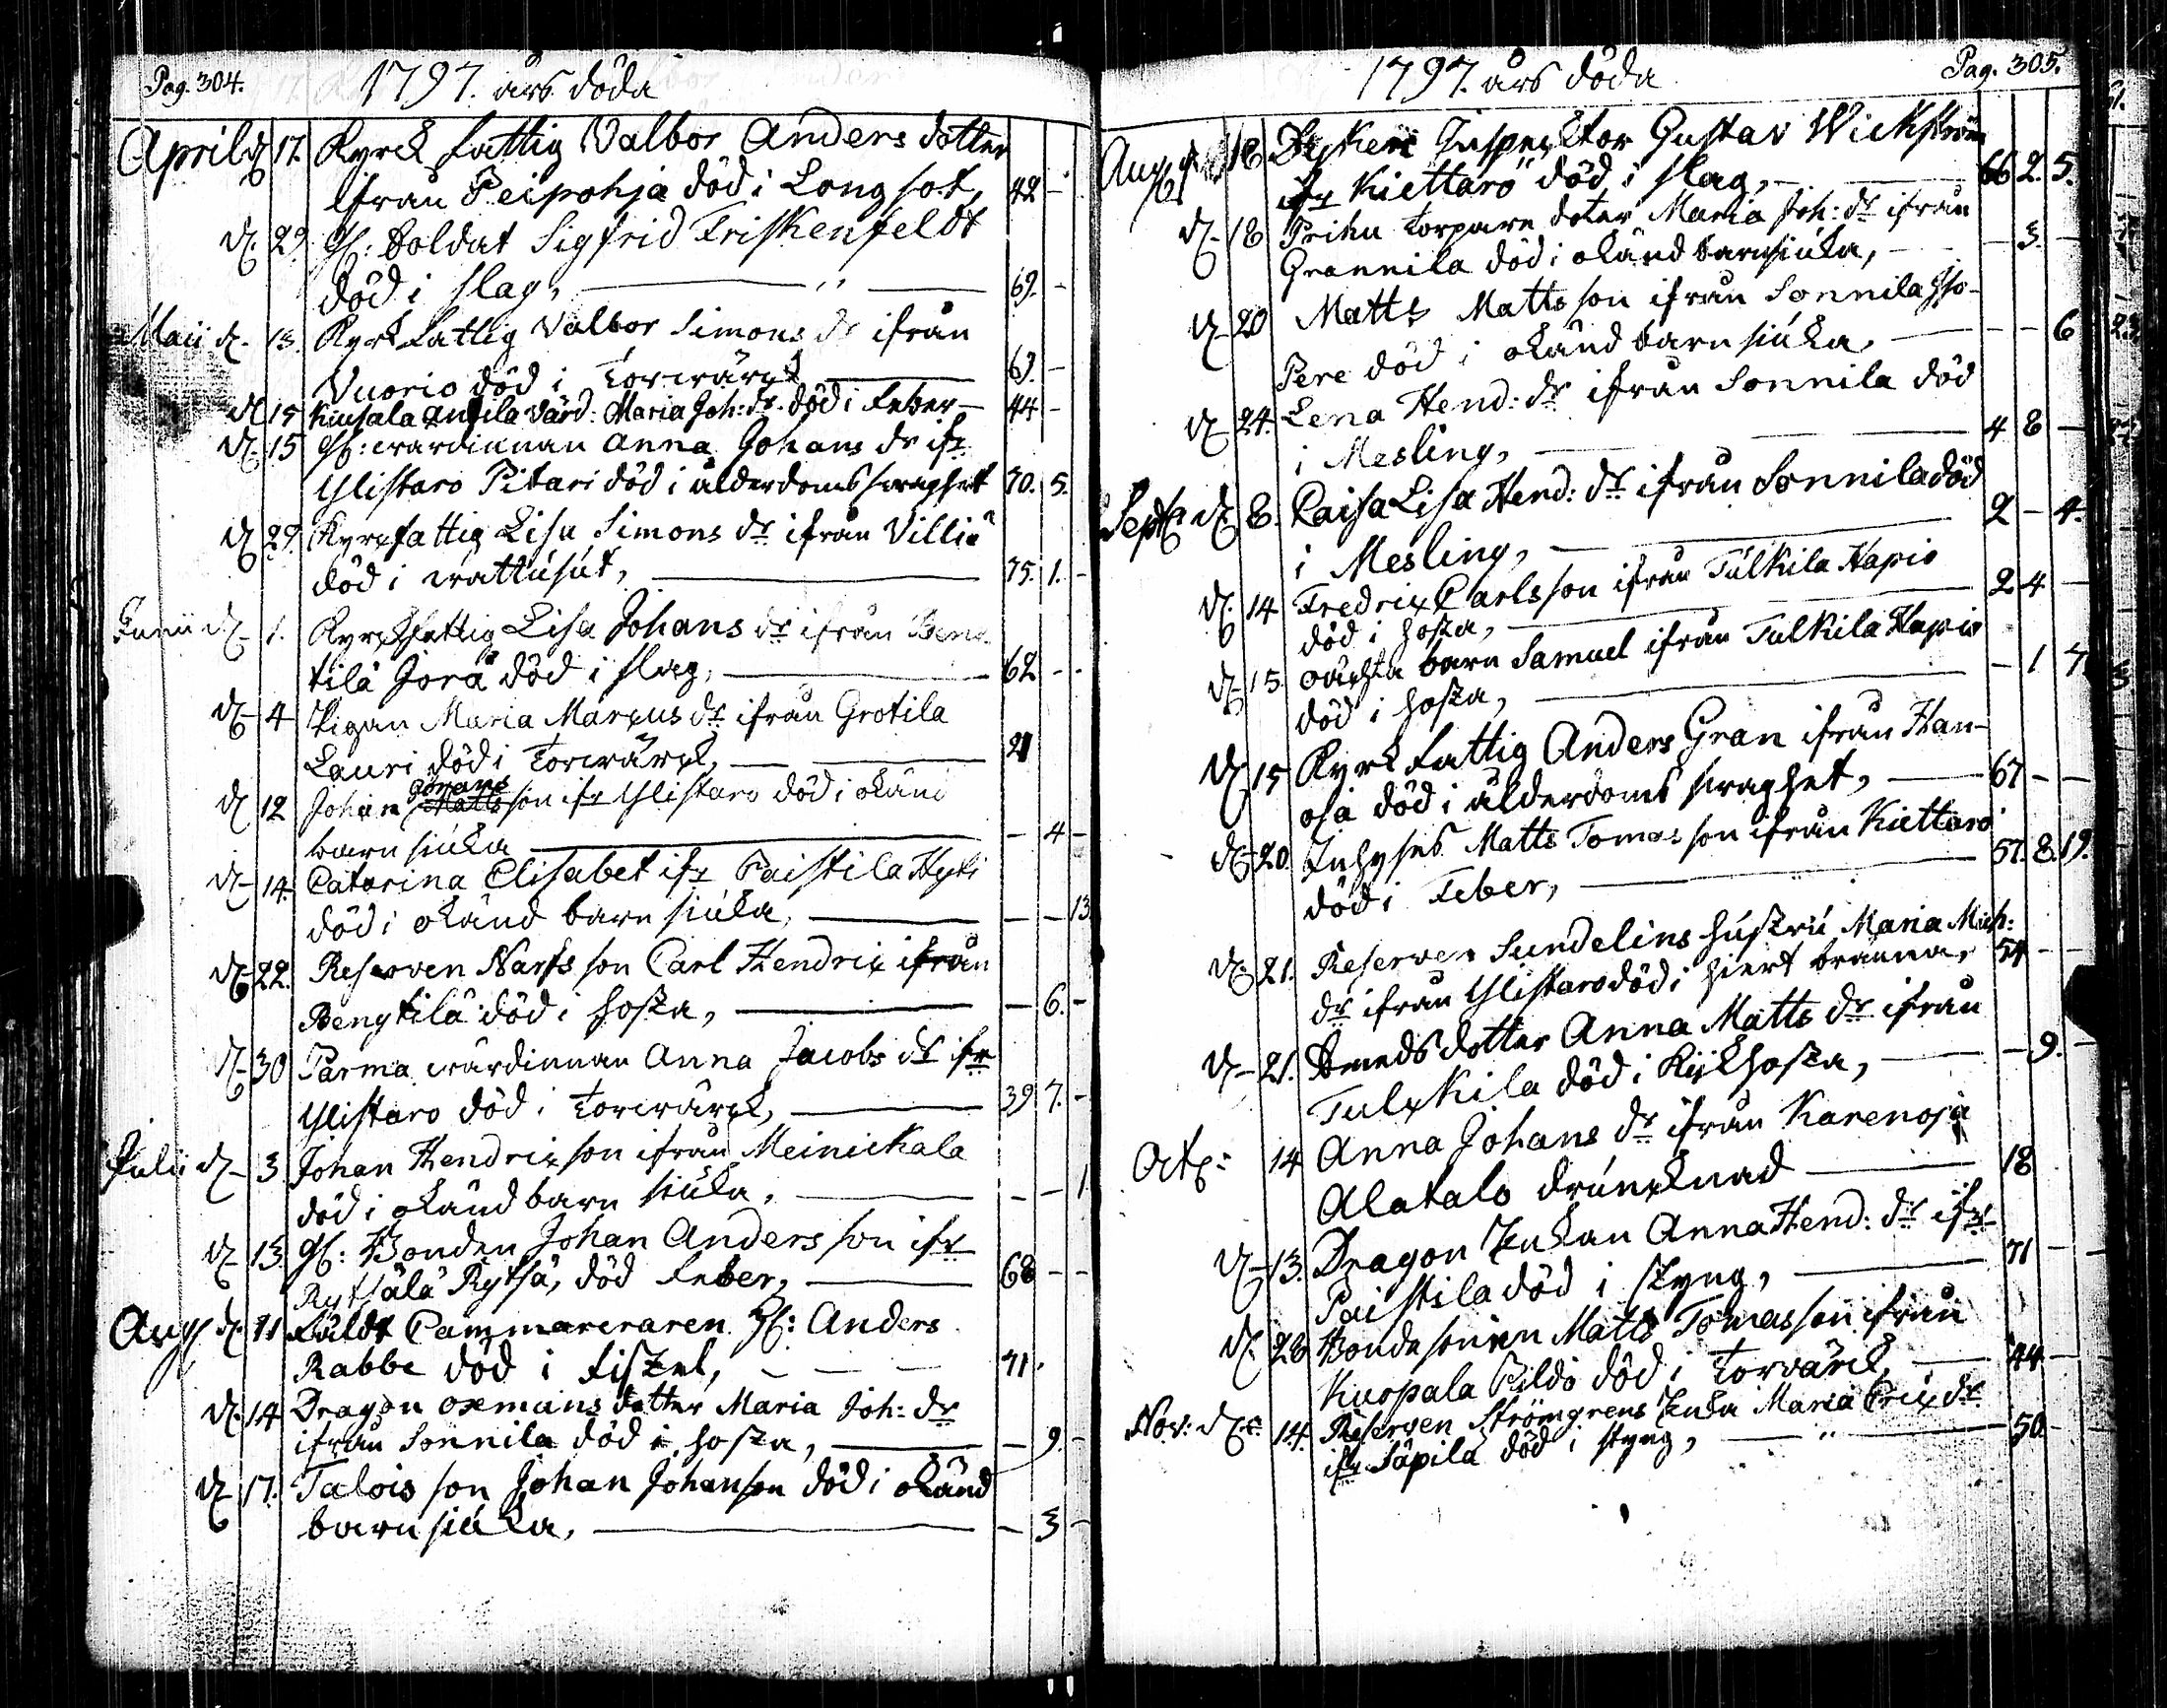 Pag. 304.
1797. års döda
April d. 17. Kyrck fattig Valbor Anders dotter
ifrån Peipohja död i Long sot, 42 -
d. 29. Gl: Soldat Sigfrid Friskenfeldt
död i slag, 69. -
Maii d. 13. Kyrk fattig Valbor Simons dr ifrån
Vuorio död i Torrwärck 69. -
d. 15 Kiusala Anfila värd: Maria Joh: dr. död i Feber 44 -
d. 15 Gl: wärdinnan Anna Johans dr ifr
Ylistaro Pitari död i ålderdoms swaghet 70. 5.
d. 29. Kyrckfattig Lisa Simons dr ifrån Villiö
död i wattusút, 75. 1. -
Junii d. 1. Kyrckfattig Lisa Johans dr ifrån Beng-
tilä Jorä död i slag, 62 - -
d. 4 Pigan Maria Marcus dr ifrån Grotila
Lauri död i Torrwärck, 21
d. 12 Johan Görans son ifr Ylistaro död i okänd
barn siúka - 4 -
d. 14. Catarina Elisabet ifr Paistila Hyti
död i okänd barn siúka, - - 13
d. 22. Reserven Narfs son Carl Hendric ifrån
Bengtilä död i hosta, - 6. -
d. 30 Parma wärdinnan Anna Jacobs dr ifr
Ylistaro död i Torrwärck, 39 7. -
Julii d. 3. Johan Hendricson ifrån Meinickala
död i okänd barn siúka, - - 1
d. 13. Gl: Bonden Johan Anders son ifr
Rytsälä Rytsä, död Feber, 68 - -
Aug d. 11 Fäldt Cammereraren H: Anders
Rabbe död i Fistel, 71.
d. 14 Dragon Oxmans dotter Maria Joh: dr
ifrån Sonnila död i hosta, - 9. -
d. 17. Talois son Johan Johanson död i okänd
barn siúka, - 3 -
Pag. 305.
1797. års döda
Augusti 18 Inspector Gustav Wickström
ifr Kiettarö död i slag, 66 2. 5.
d. 18 Prihu Torpare doter Maria Joh: dr ifrån
Grannila död i okänd barnsiúka, - 3. -
d. 20 Matts Matts son ifrån Sonnila Iso-
Pere död i okänd barn siúka, - - 6
d. 24. Lena Hend: dr ifrån Sonnila död
i Mesling, 4 8 -
Sept: d. 8. Caisa Lisa Hend: dr ifrån Sonnila död
i Mesling, 2 - 4.
d. 14 Fredric Carls son ifrån Túlkila Hapio
död i hosta, 2 4 -
d. 15. oächta barn Samuel ifrån Tulkila Hapio
död i hosta, - 1 7
d. 15 Kyrk fattig Anders Gran ifrån Han-
oja död i ålderdoms swaghet, 67 - -
d. 20. Inhyses Matts Tomas son ifrån Kiettarö
död i Feber, 57. 8. 19.
d. 21. Reserven Sundelins hústrú Maria Mich:
dr ifrån Ylistaro död i hiert bränna, 54 - -
d. 21. Smeds dotter Anna Matts dr ifrån
Tulckila död i Kikhosta, - 9. -
Oct: 14 Anna Johans dr ifrån Karenoja
Alatalo drúncknad 18
d. 13. Dragon Enkan Anna Hend: dr ifr
Paistila död i styng, 71 - -
d. 28 Bonda sonen Matts Tomasson ifrån
Kuopala Pildo död i Torvärck, 44 -
Nov: d. 14. Reserven Strömgrens Enka Maria Eric dr
ifr Säpilä död i styng, 50 -